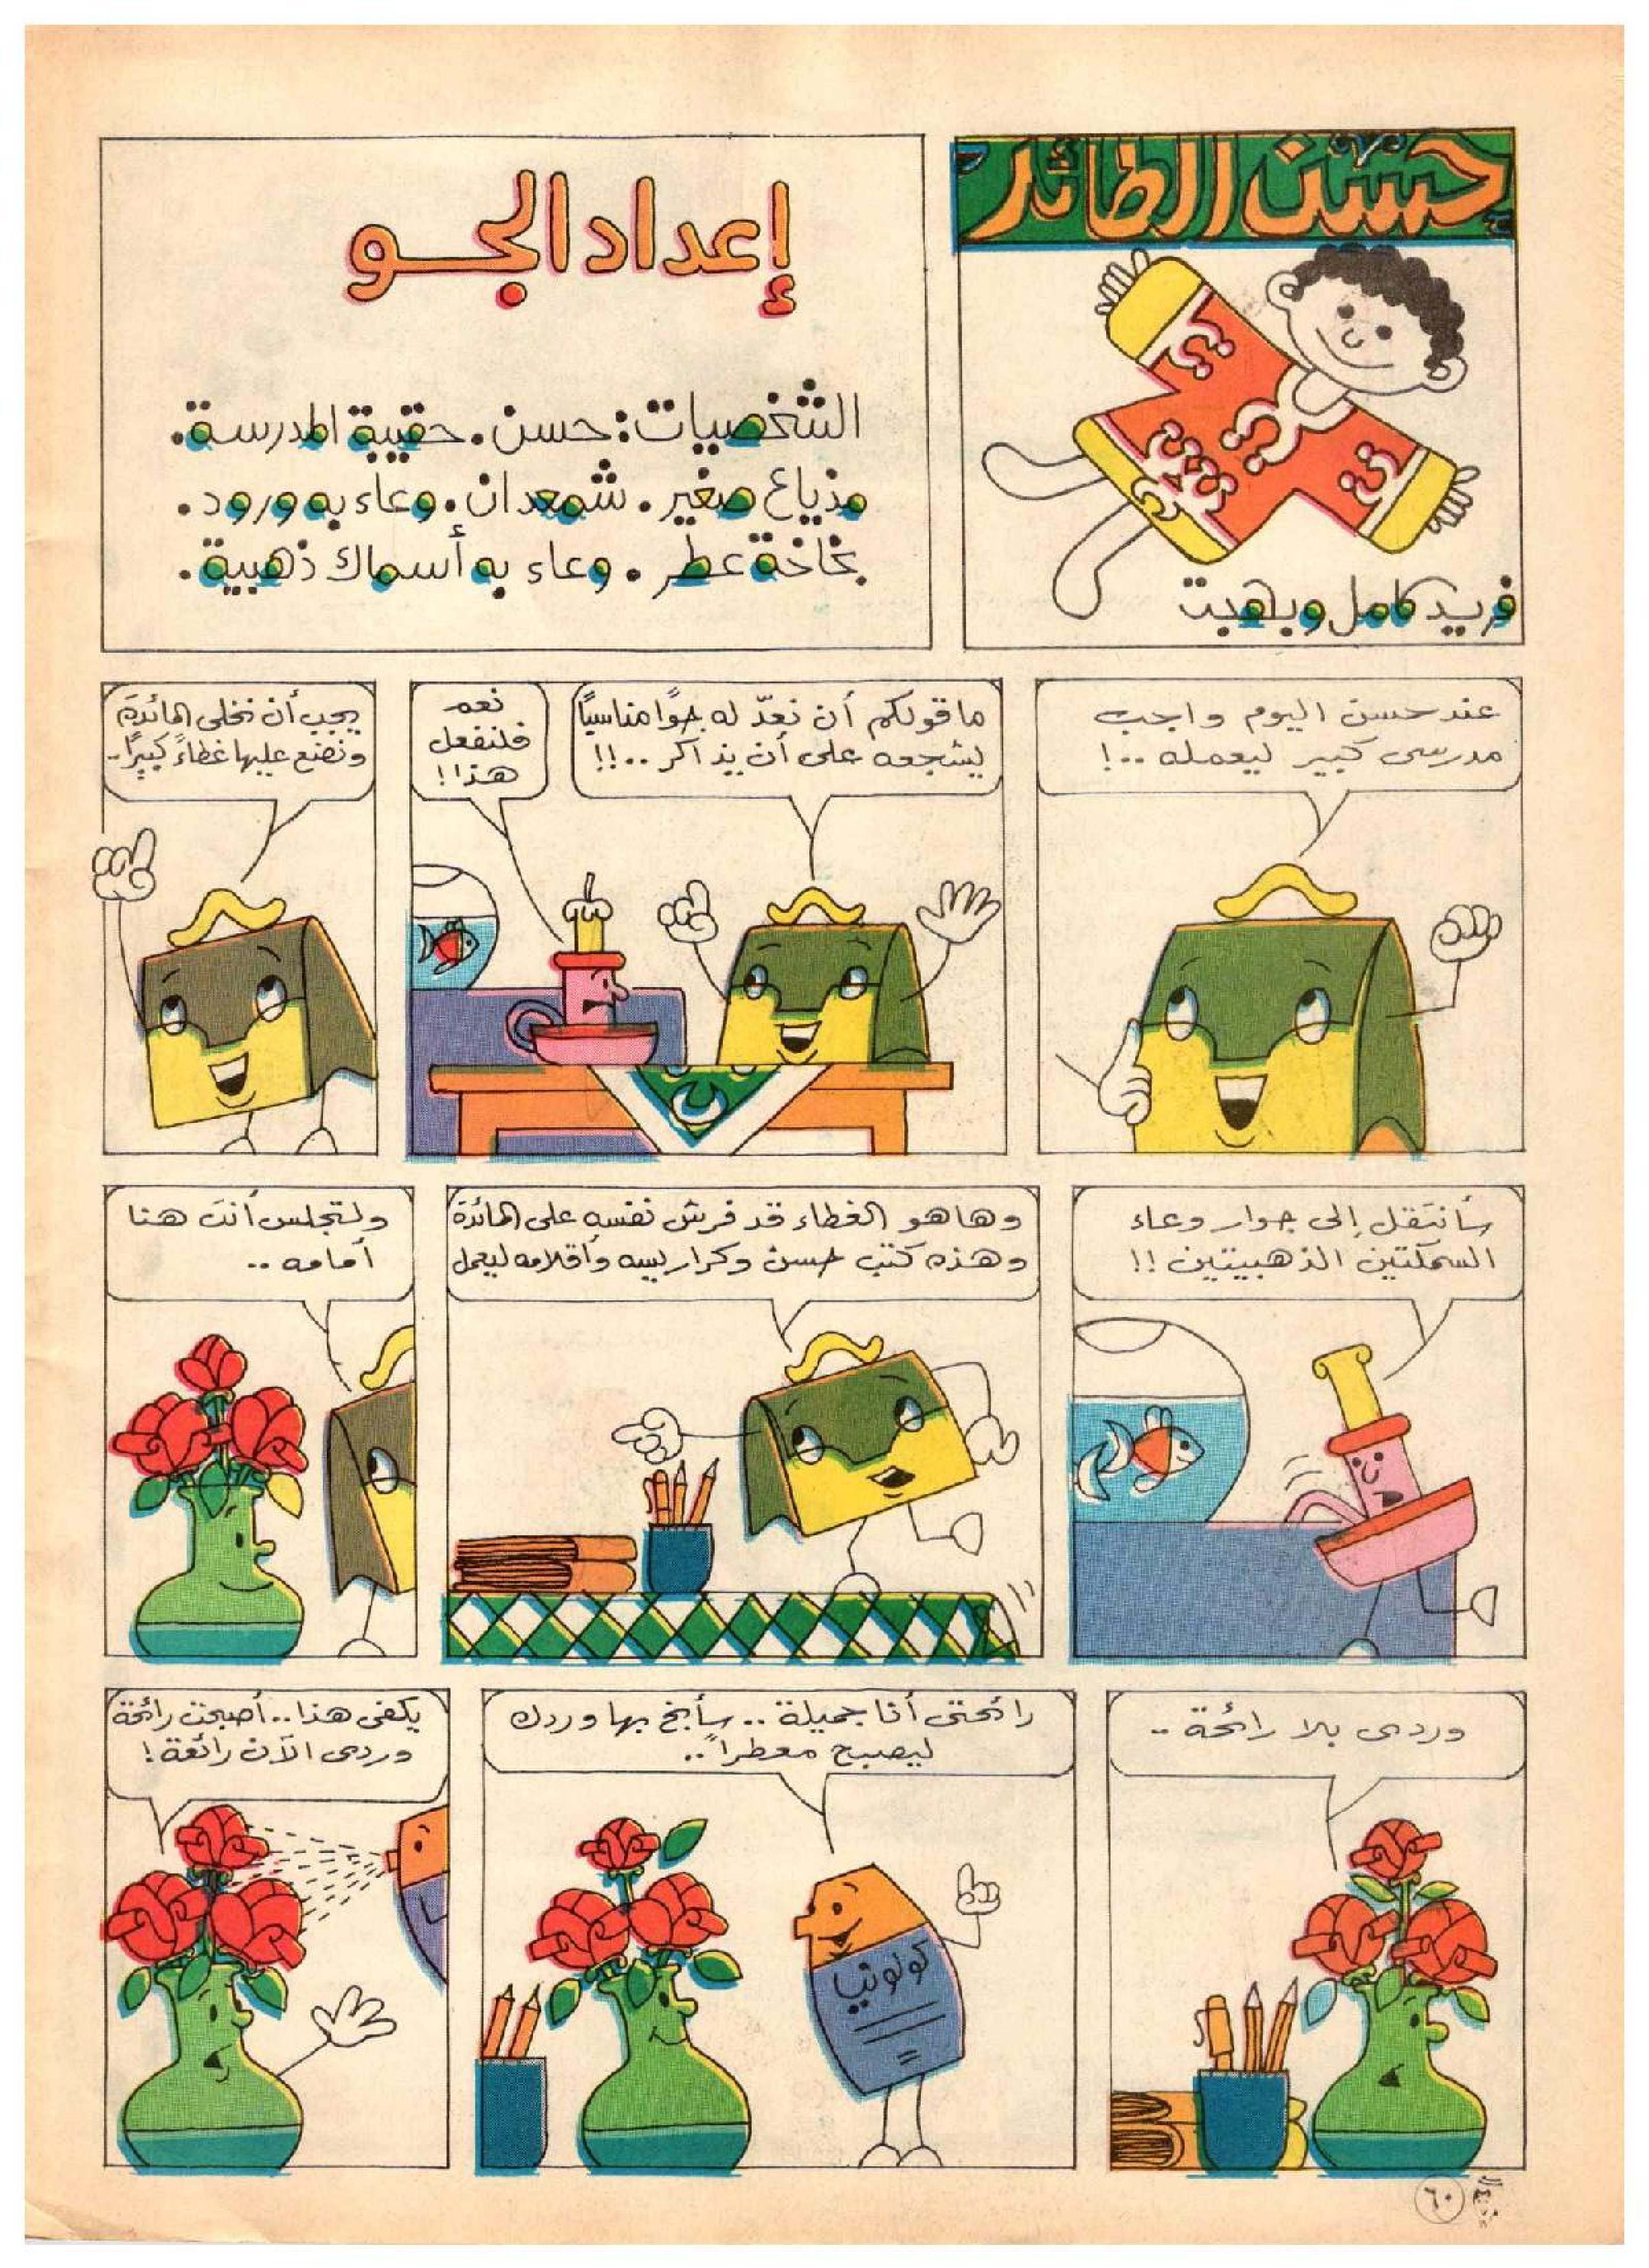 حسن الطائر
فريد كامل وبهجت
إعداد الجو
الشخصيات: حسن. حقيبة المدرسة.
مذياع صغير. شمعدان. وعاء به ورود.
بخاخة عطر. وعاء به أسماك ذهبية.
عند حسن اليوم واجب
مدرسى كبير ليعمله ..!
ما قولكم أن نعدّ له جوًا مناسبًا
يشجعه على أن يذاكر ..!!
نعم
فلنفعل
هذا!
يجب أن نخلى المائدة
ونضع عليها غطاءً كبيرًا..
سأنتقل إلى جوار وعاء
السمكتين الذهبيتين !!
وها هو الغطاء قد فرش نفسه على المائدة
وهذه كتب حسن وكراريسه وأقلامه ليعمل
ولتجلس أنت هنا
أمامه ..
وردى بلا رائحة ..
رائحتى أنا جميلة .. سأبخ بها وردك
ليصبح معطرًا ..
كولونيا
يكفى هذا .. أصبحت رائحة
وردى الآن رائعة !
٦٠